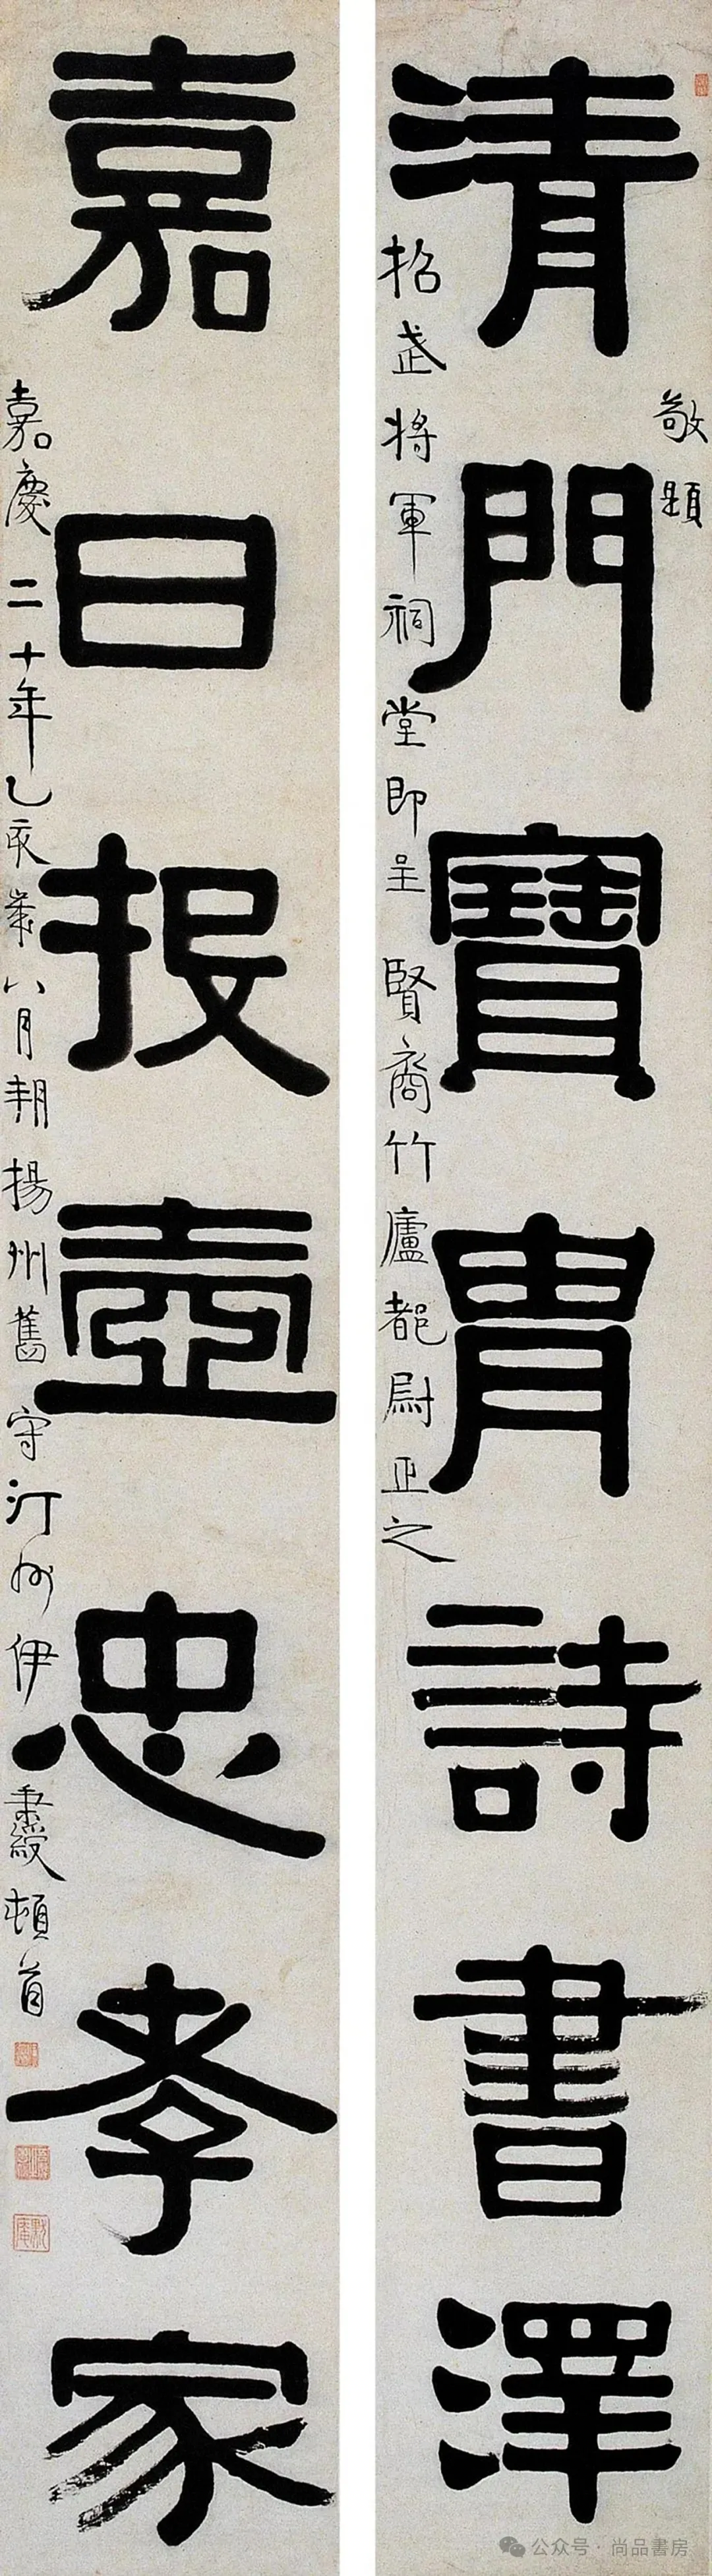 清門寶胄詩書澤
敬題
招武將軍祠堂即呈賢裔竹廬都尉正之
嘉日投壺忠孝家
嘉慶二十年乙亥歲八月朔揚州舊守汀州伊秉綬頓首
公众号·尚品書房